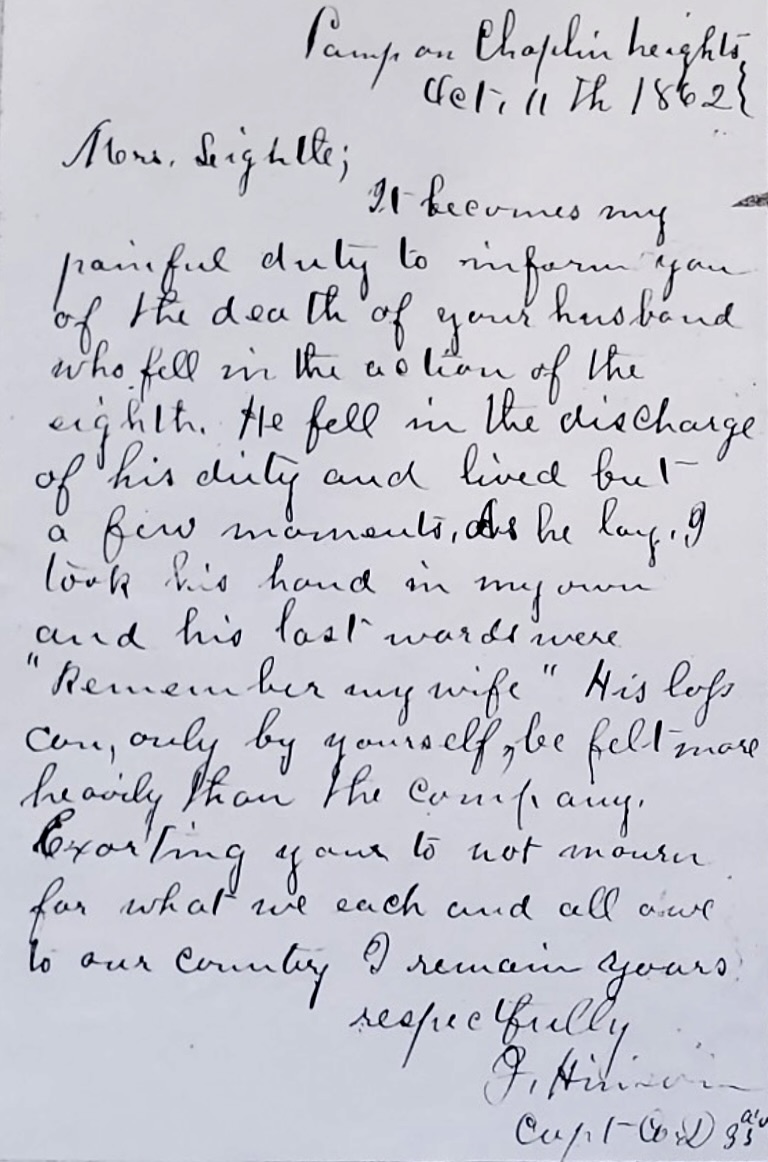 Camp on Chaplin heights
Oct, 11 Th 1862}
Mrs. Leightle;
It becomes my
painful duty to inform you
of the death of your husband
who fell in the action of the
eighth. He fell in the discharge
of his duty and lived but
a few moments, As he lay, I
took his hand in my own
and his last words were
"Remember my wife" His loss
can, only by yourself, be felt more
heavily than the company.
Exorting your to not mourn
for what we each and all owe
to our country I remain yours
respectfully
J. Hinson
Capt Co D